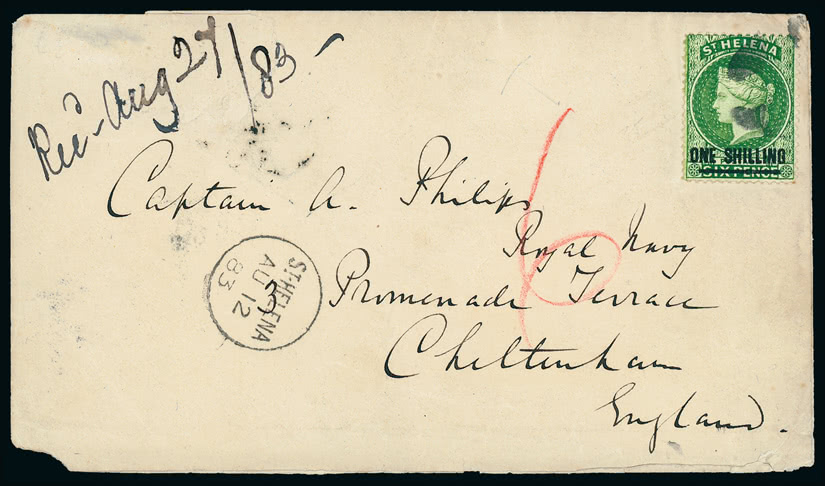 Recd Aug 27/83
ST HELENA
ONE SHILLING
SIX PENCE
Captain A. Philips
Royal Navy
Promenade Terrace
Cheltenham
England.
6
ST. HELENA
AU 12
83